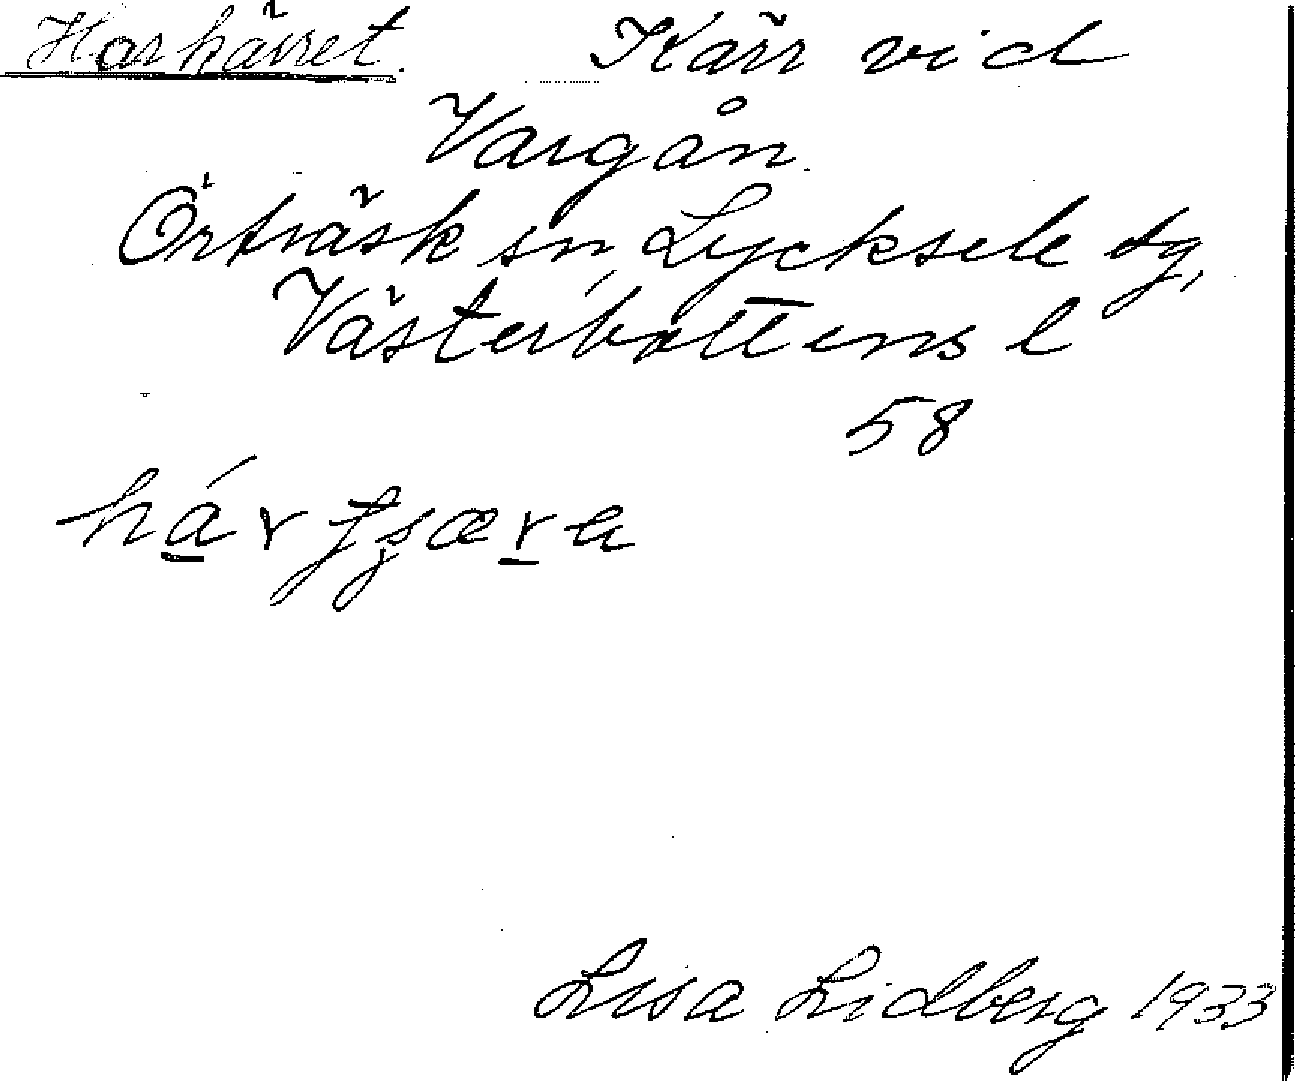 Harkärret. Kärr vid
Vargån.
Örträsk sn, Lycksele tg,
Västerbottens l
58
Lisa Lidberg 1933